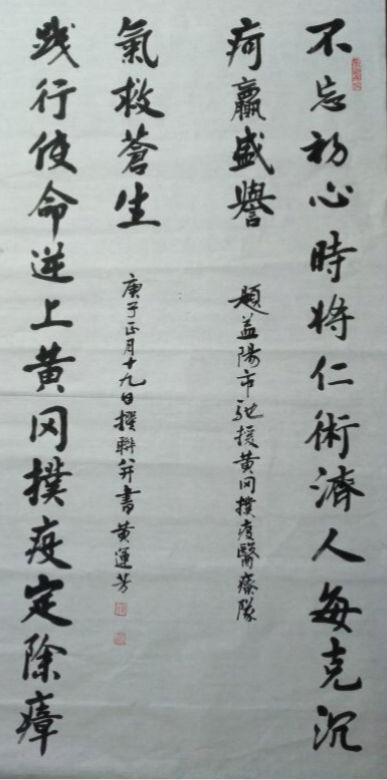 不忘初心時将仁術濟人每克沉
疴贏盛譽
題益陽市馳援黄冈撲疫醫療隊
践行使命逆上黄冈撲疫定除瘴
氣救蒼生
庚子正月十九日撰聯并書黄運芳